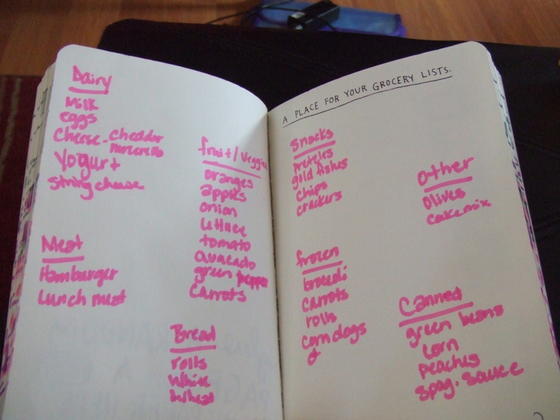 Dairy
Milk
eggs
cheese - cheddar
mozzerella
Yogurt
string cheese
Meat
Hamburger
Lunch meat
fruit/veggies
oranges
apples
onion
lettuce
tomato
avacado
green pepper
carrots
Bread
rolls
white
wheat
A PLACE FOR YOUR GROCERY LISTS.
Snacks
pretzles
gold fishes
chips
crackers
frozen
carrots
rolls
corn dogs
Other
Olives
cake mix
Canned
green beans
corn
peaches
spag. sauce